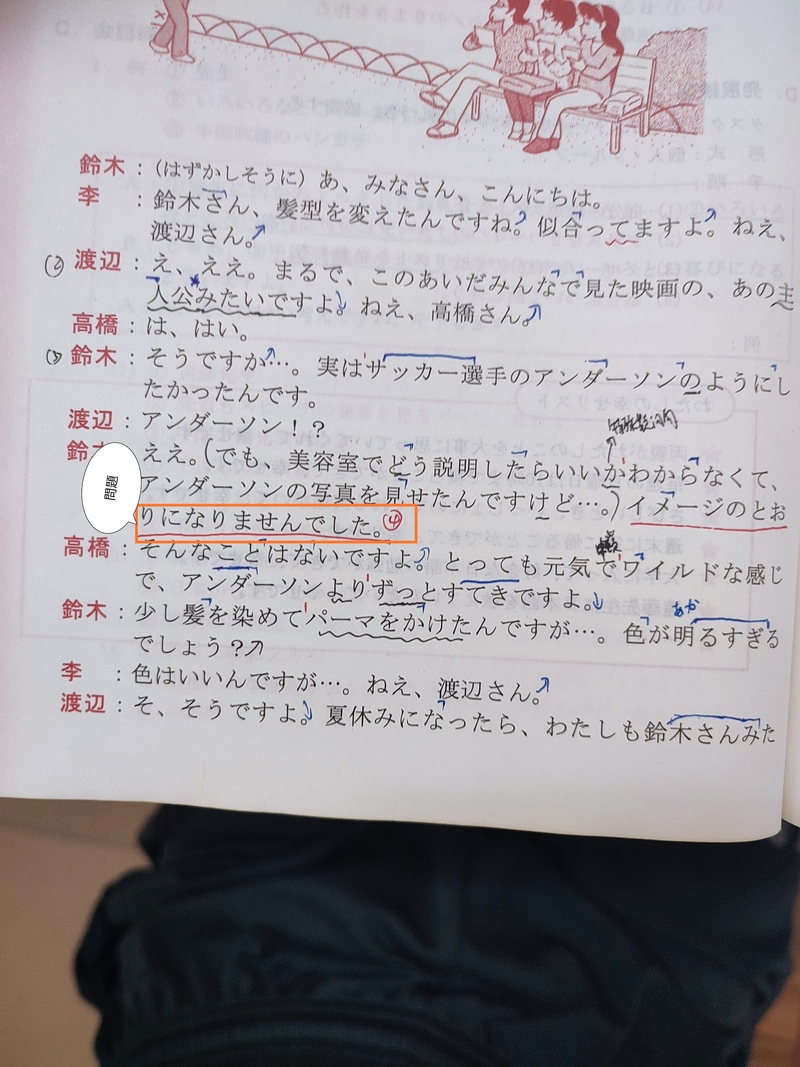 鈴木：（はずかしそうに）あ、みなさん、こんにちは。
李：鈴木さん、髪型を変えたんですね。似合ってますよ。ねえ、
渡辺さん。
(2) 渡辺：え、ええ。まるで、このあいだみんなで見た映画の、あの主
人公みたいですよ。ねえ、高橋さん。
高橋：は、はい。
(3) 鈴木：そうですか…。実はサッカー選手のアンダーソンのようにし
たかったんです。
渡辺：アンダーソン！？
鈴木：ええ。（でも、美容室でどう説明したらいいかわからなくて、
アンダーソンの写真を見せたんですけど…。）イメージのとお
問題
りになりませんでした。④
高橋：そんなことはないですよ。とっても元気でワイルドな感じ
で、アンダーソンよりずっとすてきですよ。
あか
鈴木：少し髪を染めてパーマをかけたんですが…。色が明るすぎる
でしょう？
李：色はいいんですが…。ねえ、渡辺さん。
渡辺：そ、そうですよ。夏休みになったら、わたしも鈴木さんみた